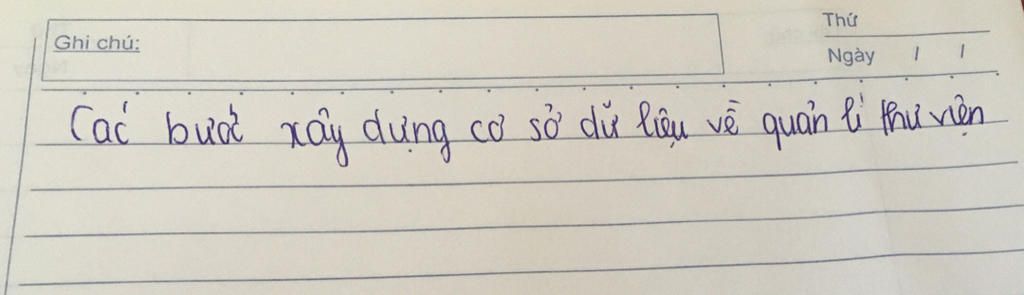 Ghi chú:
Thứ
Ngày / /
Các bước xây dựng cơ sở dữ liệu về quản lí thư viện